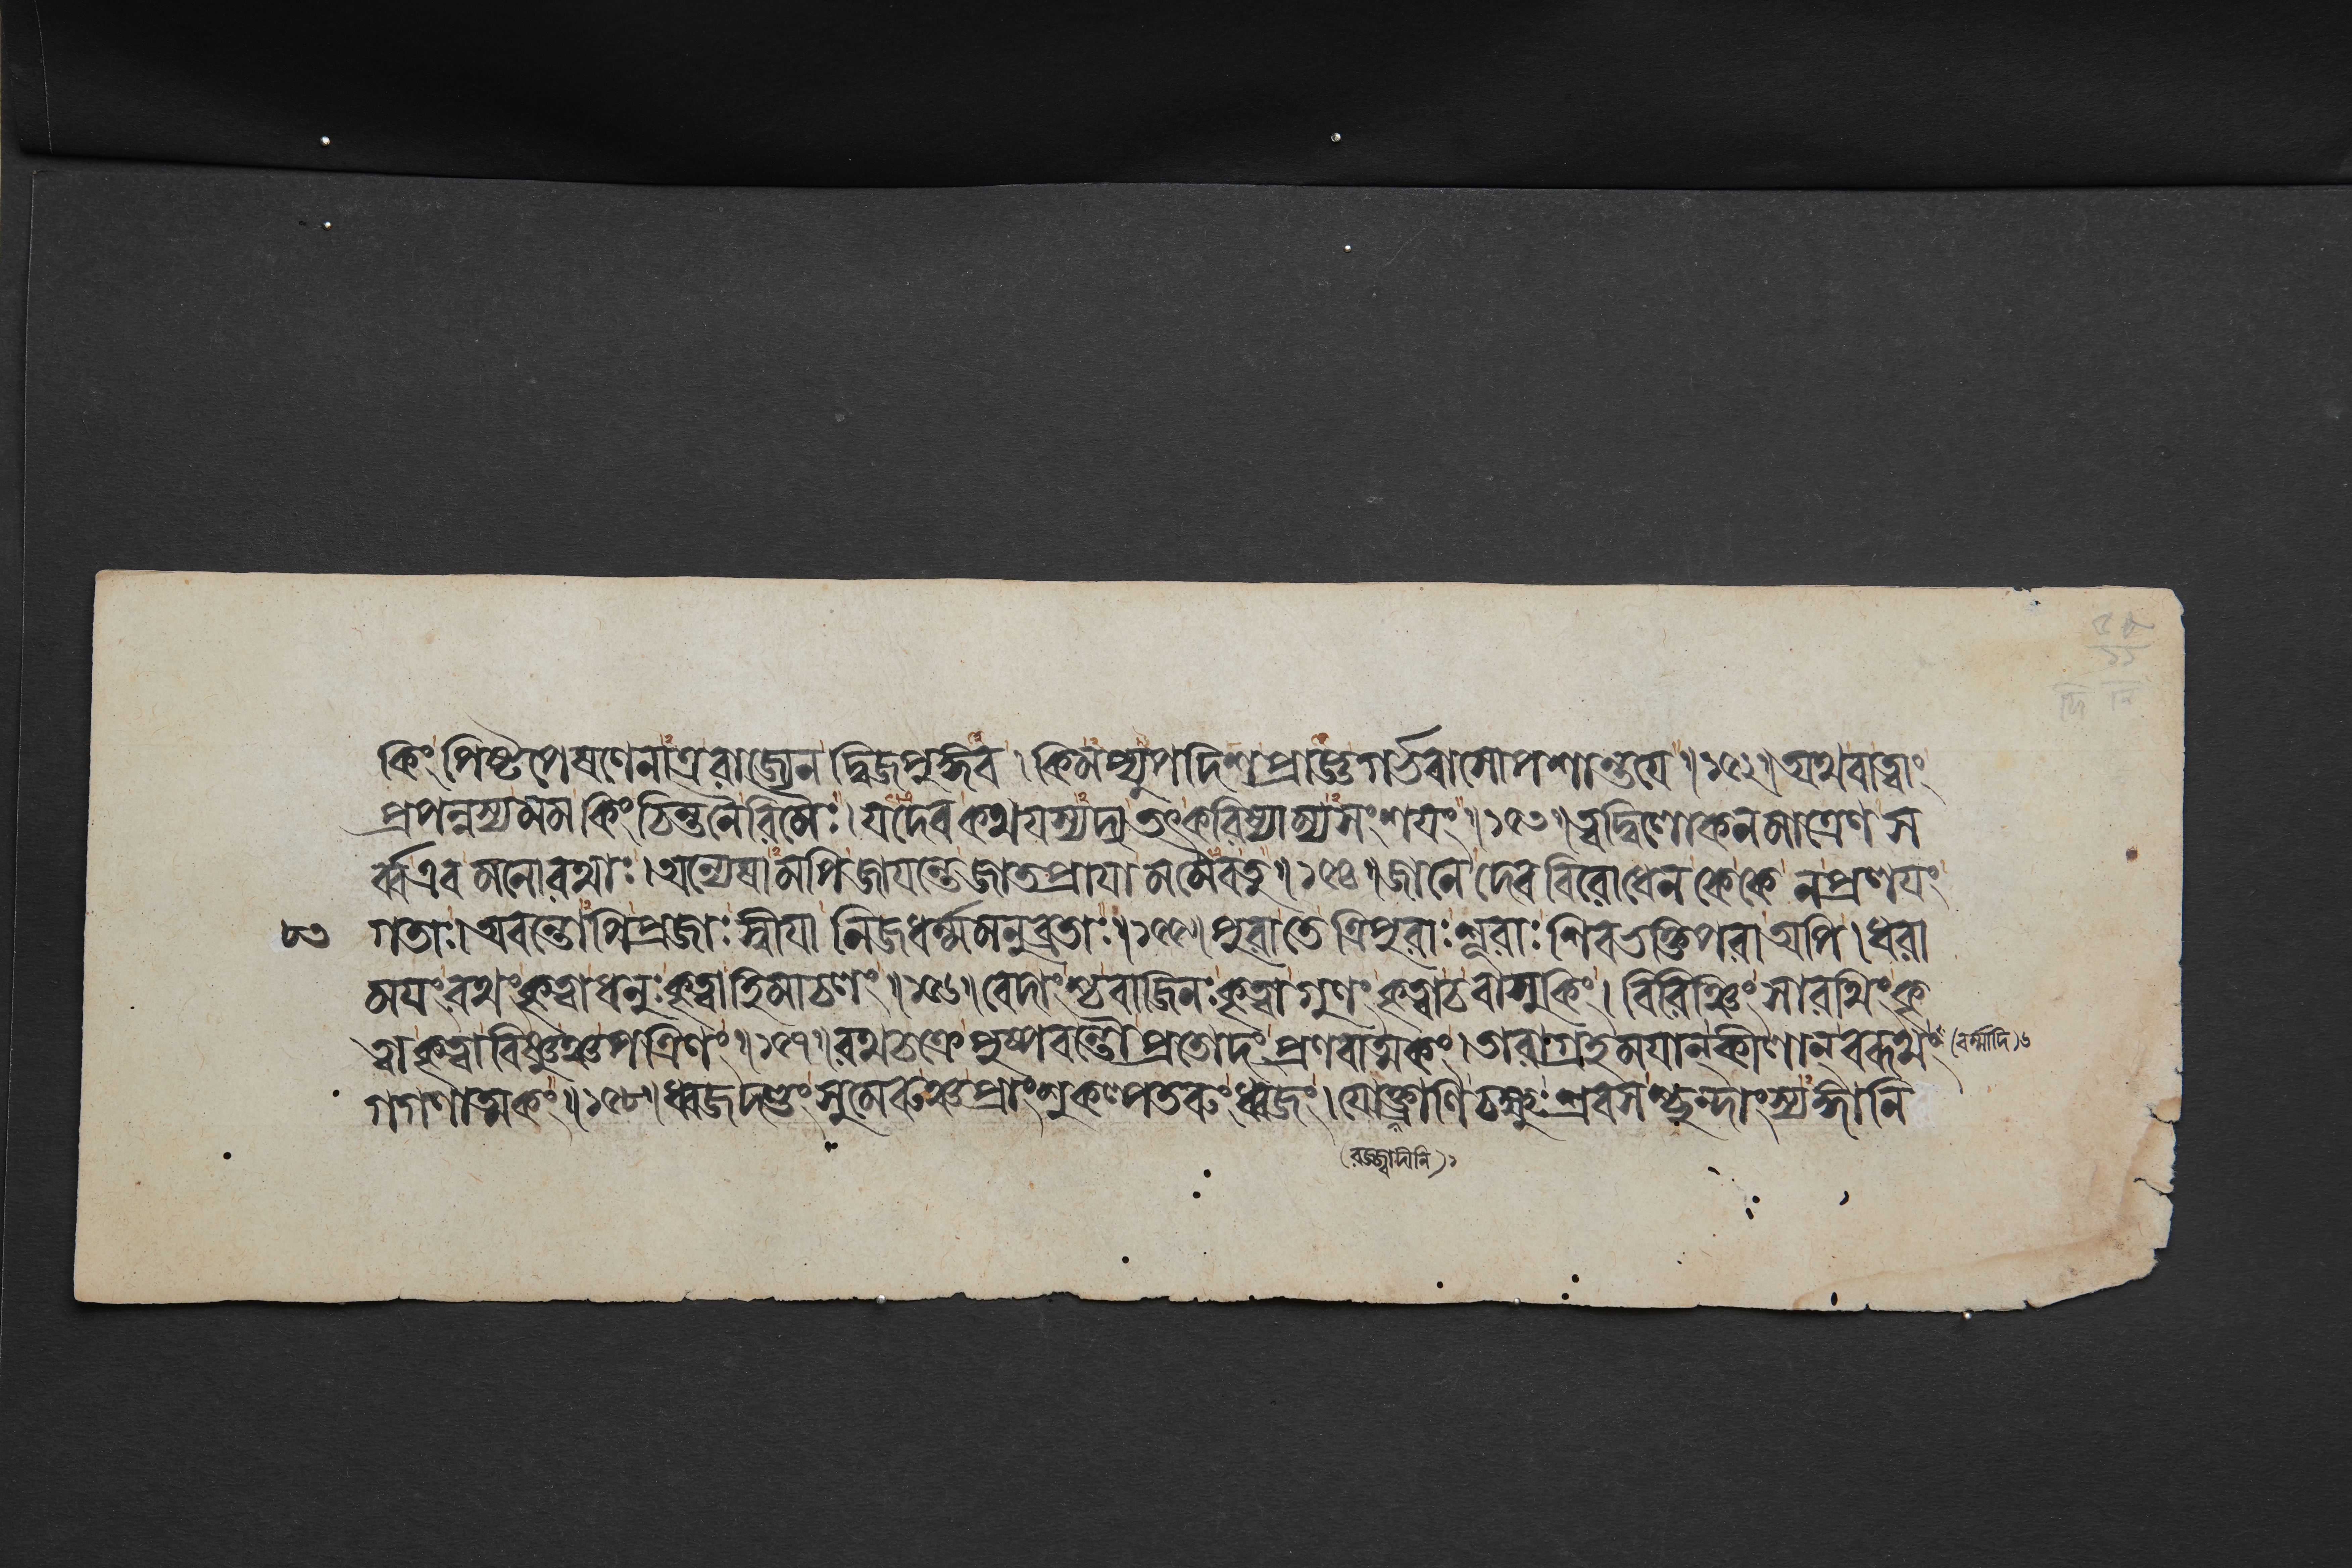 কিং পিষ্টপেষণেনাত্র রাজ্যেন দ্বিজপুঙ্গব । কিমপ্যুপদিশ প্রাজ্ঞ গর্ভবাসোপশান্তয়ে ॥১৫২॥ অথবা ত্বাং
প্রপন্নস্য মম কিং চিন্তনৈরিমৈঃ । যদেব কথয়স্যদ্য তৎকরিষ্যাম্যসংশয়ং ॥১৫৩॥ ত্বদ্বিলোকনমাত্রেণ স
র্ব্ব এব মনোরথাঃ । অন্যেষামপি জায়ন্তে জাতপ্রায়া মমৈব তু ॥১৫৪॥ জানে দেববিরোধেন কে কে ন প্রণয়ং
৮৩ গতাঃ । অবন্তোপি প্রজাঃ স্বীয়া নিজধর্ম্মমনুব্রতাঃ ॥১৫৫॥ পুরা তে ত্রিপুরাঃ শূরাঃ শিবভক্তিপরা অপি । ধরা
ময়ং রথং কৃত্বা ধনুঃ কৃত্বা হিমাচলং ॥১৫৬॥ বেদাংশ্চ বাজিনঃ কৃত্বা গুণং কৃত্বা চ বাসুকিং । বিরিঞ্চিং সারথিং কৃ
ত্বা কৃত্বা বিষ্ণুঞ্চ পত্রিণং ॥১৫৭॥ রথচক্রে পুষ্পবন্তৌ প্রতোদং প্রণবাত্মকং । তারাগ্রহময়ান্ কীলান্ বরূথং (বর্ম্মাদি)৬
গগণাত্মকং ॥১৫৮॥ ধ্বজদণ্ডং সুমেরুঞ্চ প্রাংশু কল্পতরুং ধ্বজং । যোক্ত্রাণি চক্ষুঃশ্রবসশ্ছন্দাংস্যঙ্গানি
(রজ্জ্বাদীনি)১